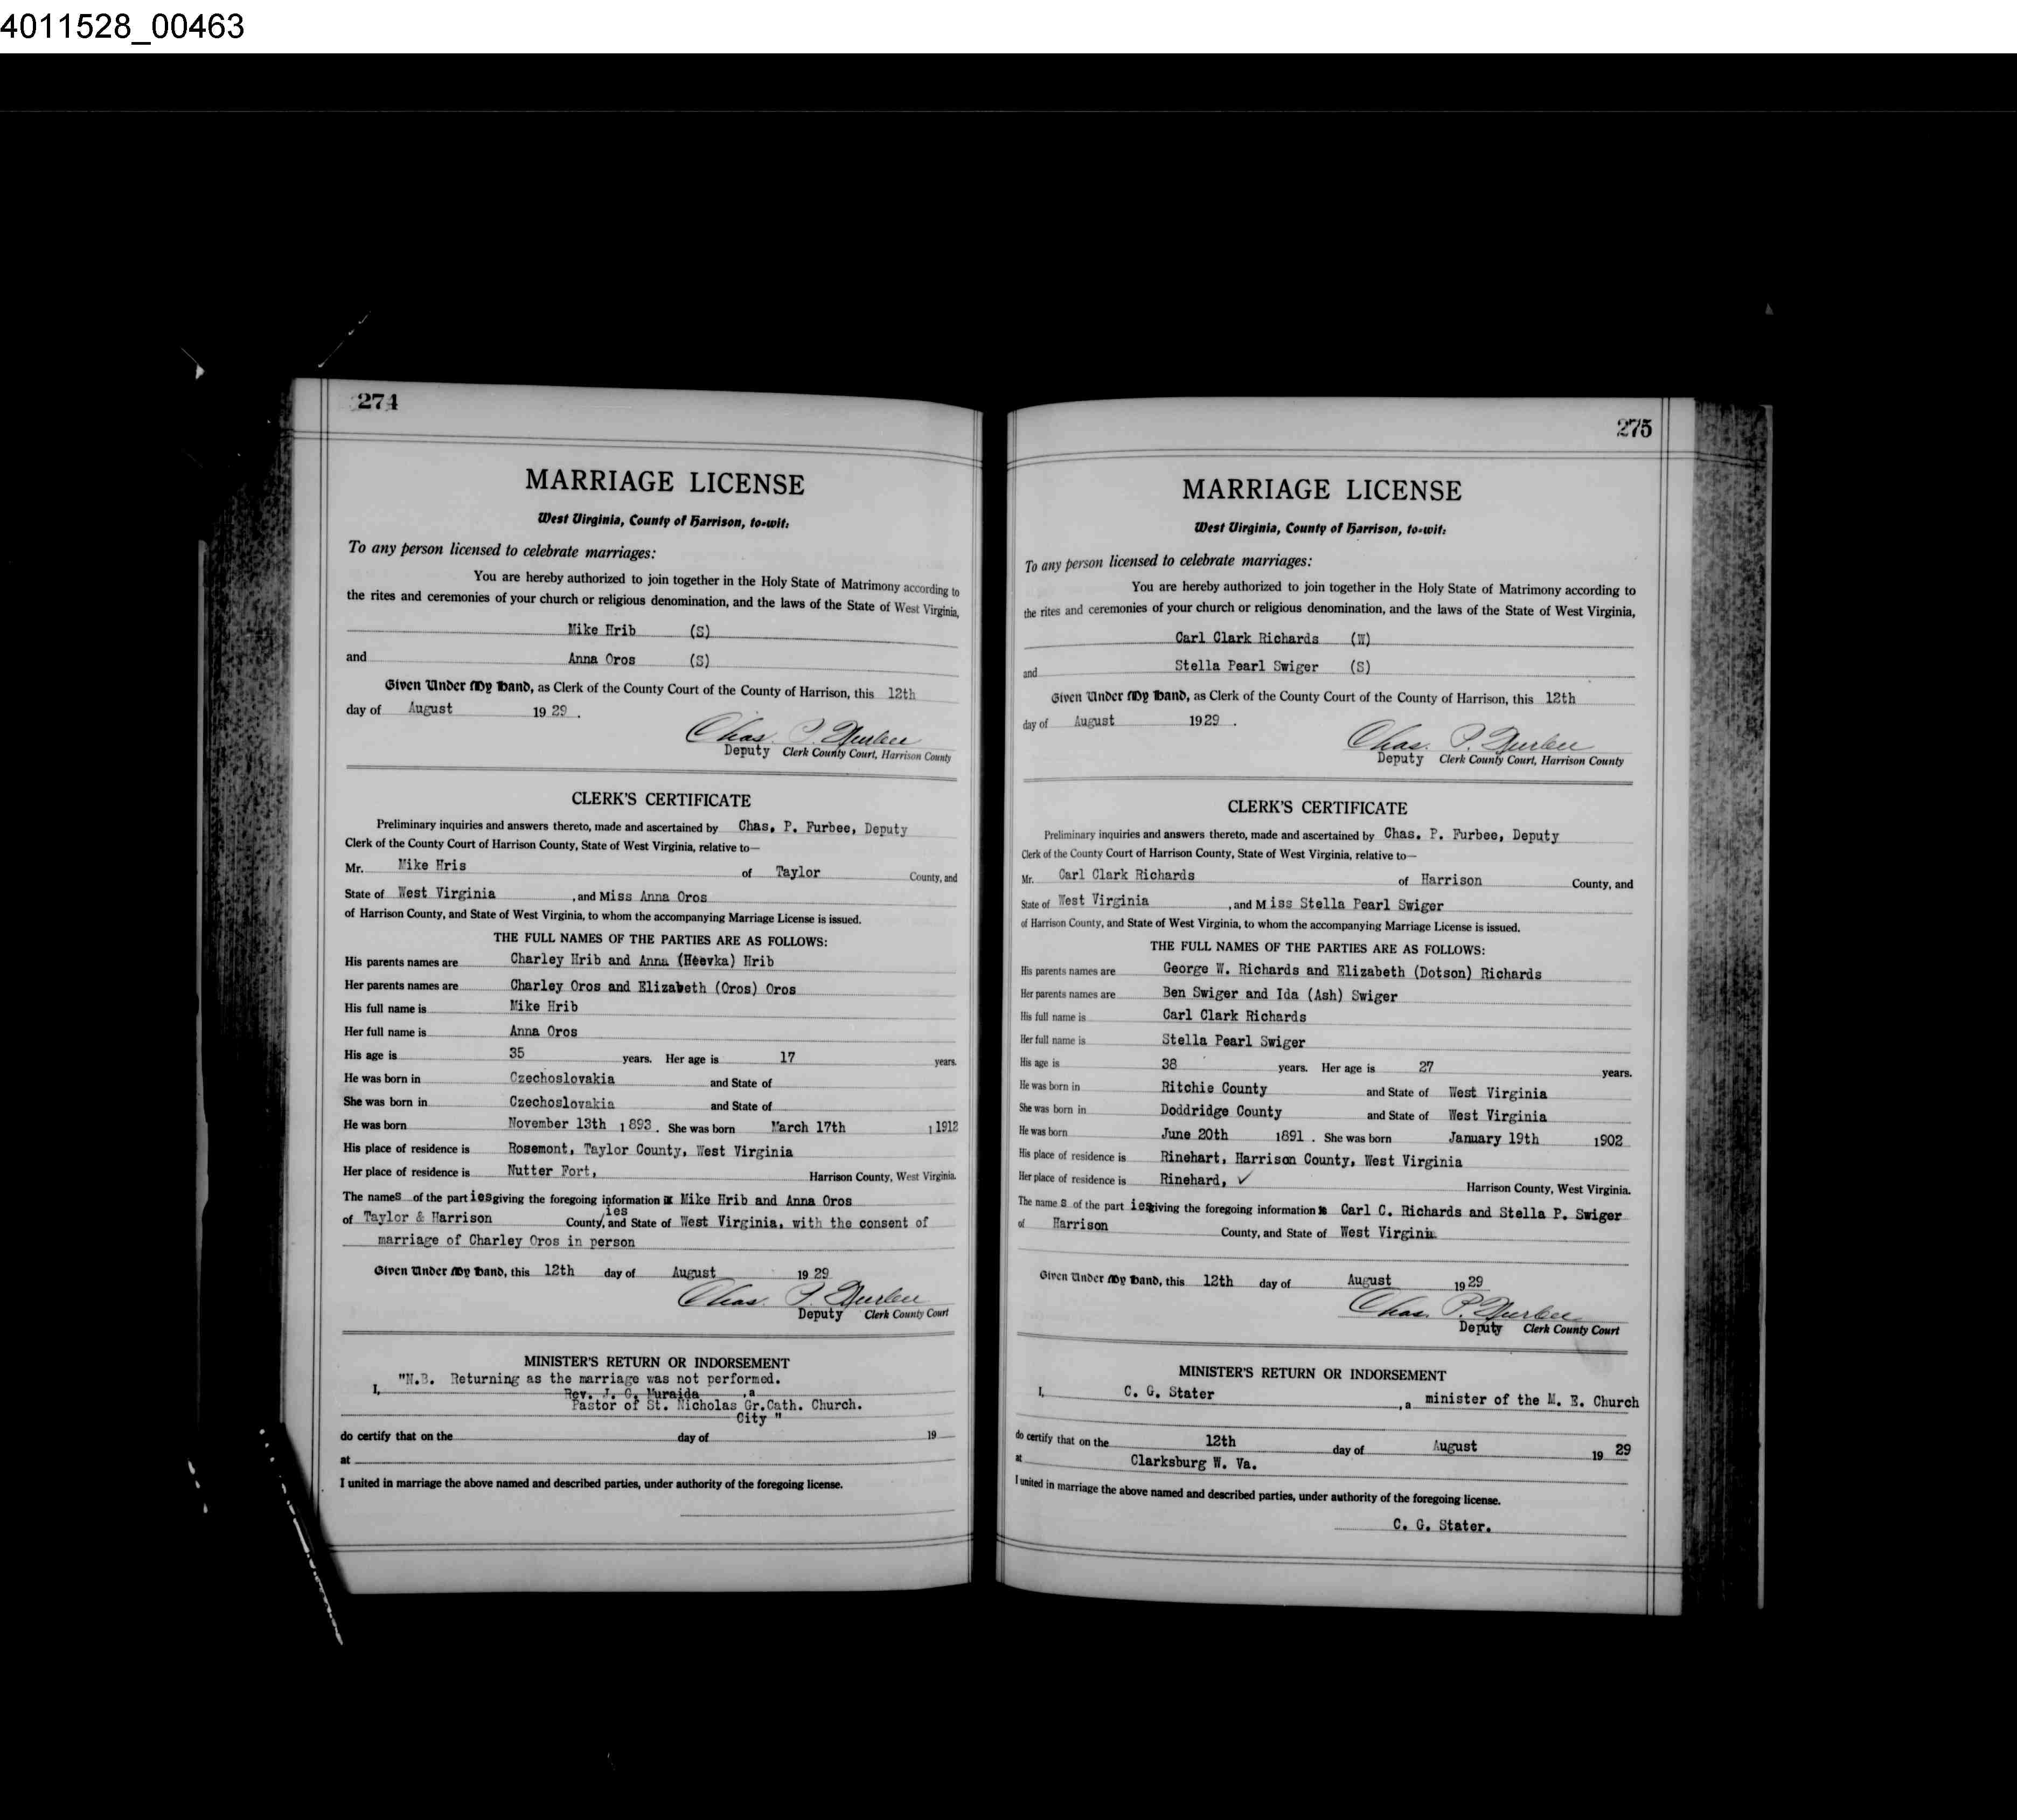 4011528_00463
274
MARRIAGE LICENSE
West Virginia, County of Harrison, to-wit:
To any person licensed to celebrate marriages:
You are hereby authorized to join together in the Holy State of Matrimony according to
the rites and ceremonies of your church or religious denomination, and the laws of the State of West Virginia,
Mike Hrib (S)
and Anna Oros (S)
Given Under My Hand, as Clerk of the County Court of the County of Harrison, this 12th
day of August 19 29 .
Chas. P. Furbee
Deputy Clerk County Court, Harrison County
CLERK'S CERTIFICATE
Preliminary inquiries and answers thereto, made and ascertained by Chas. P. Furbee, Deputy
Clerk of the County Court of Harrison County, State of West Virginia, relative to—
Mr. Mike Hris of Taylor County, and
State of West Virginia , and Miss Anna Oros
of Harrison County, and State of West Virginia, to whom the accompanying Marriage License is issued.
THE FULL NAMES OF THE PARTIES ARE AS FOLLOWS:
His parents names are Charley Hrib and Anna (Heevka) Hrib
Her parents names are Charley Oros and Elizabeth (Oros) Oros
His full name is Mike Hrib
Her full name is Anna Oros
His age is 35 years. Her age is 17 years.
He was born in Czechoslovakia and State of
She was born in Czechoslovakia and State of
He was born November 13th 1893 . She was born March 17th 1 1912
His place of residence is Rosemont, Taylor County, West Virginia
Her place of residence is Nutter Fort, Harrison County, West Virginia.
The names of the part ies giving the foregoing information Mike Hrib and Anna Oros
of Taylor & Harrison County,ies and State of West Virginia, with the consent of
marriage of Charley Oros in person
Given Under My Hand, this 12th day of August 19 29
Chas. P. Furbee
Deputy Clerk County Court
MINISTER'S RETURN OR INDORSEMENT
"N.B. Returning as the marriage was not performed.
I, Rev. J. G. Muraida , a
Pastor of St. Nicholas Gr.Cath. Church.
City "
do certify that on the day of 19
at
I united in marriage the above named and described parties, under authority of the foregoing license.
275
MARRIAGE LICENSE
West Virginia, County of Harrison, to-wit:
To any person licensed to celebrate marriages:
You are hereby authorized to join together in the Holy State of Matrimony according to
the rites and ceremonies of your church or religious denomination, and the laws of the State of West Virginia,
Carl Clark Richards (W)
and Stella Pearl Swiger (S)
Given Under My Hand, as Clerk of the County Court of the County of Harrison, this 12th
day of August 19 29 .
Chas. P. Furbee
Deputy Clerk County Court, Harrison County
CLERK'S CERTIFICATE
Preliminary inquiries and answers thereto, made and ascertained by Chas. P. Furbee, Deputy
Clerk of the County Court of Harrison County, State of West Virginia, relative to—
Mr. Carl Clark Richards of Harrison County, and
State of West Virginia , and Miss Stella Pearl Swiger
of Harrison County, and State of West Virginia, to whom the accompanying Marriage License is issued.
THE FULL NAMES OF THE PARTIES ARE AS FOLLOWS:
His parents names are George W. Richards and Elizabeth (Dotson) Richards
Her parents names are Ben Swiger and Ida (Ash) Swiger
His full name is Carl Clark Richards
Her full name is Stella Pearl Swiger
His age is 38 years. Her age is 27 years.
He was born in Ritchie County and State of West Virginia
She was born in Doddridge County and State of West Virginia
He was born June 20th 1891 . She was born January 19th 1902
His place of residence is Rinehart, Harrison County, West Virginia
Her place of residence is Rinehard, ✓ Harrison County, West Virginia.
The name s of the part ies giving the foregoing information Carl C. Richards and Stella P. Swiger
of Harrison County, and State of West Virginia
Given Under My Hand, this 12th day of August 19 29
Chas. P. Furbee
Deputy Clerk County Court
MINISTER'S RETURN OR INDORSEMENT
I, C. G. Stater , a minister of the M. E. Church
do certify that on the 12th day of August 19 29
at Clarksburg W. Va.
I united in marriage the above named and described parties, under authority of the foregoing license.
C. G. Stater.